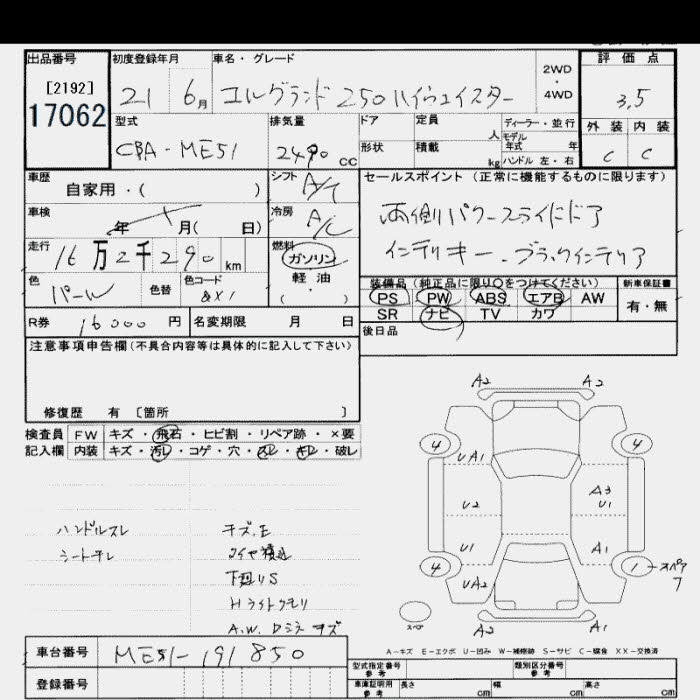 出品番号
[2192]
17062
初度登録年月
21 6月
車名・グレード
エルグランド 250ハイウェイスター
2WD
・
4WD
評価点
3.5
外装 内装
C C
型式
CBA-ME51
排気量
2490 CC
ドア
形状
定員 人
積載 kg
ディーラー・並行
モデル年式 年
ハンドル 左・右
車歴
自家用・( )
シフト A/T
車検
年 月( 日)
冷房 A/C
走行
16万2千290km
燃料
ガソリン
軽油
( ・ )
色
パール
色替
色コード
QX1
セールスポイント(正常に機能するものに限ります)
両側パワースライドドア
インテリキー・ブラックインテリア
装備品(純正品に限り○をつけてください)
PS PW ABS エアB AW
SR ナビ TV カワ
新車保証書
有・無
R券 16000円
名変期限 月 日
後日品
注意事項申告欄(不具合内容等は具体的に記入して下さい)
修復歴 有 〔箇所 〕
検査員 FW キズ・飛石・ヒビ割・リペア跡・×要
記入欄 内装 キズ・汚レ・コゲ・穴・スレ・キレ・破レ
ハンドルスレ
シートキレ
キズ.E
タイヤ積込
下廻りS
Hライトクモリ
A.W. Dミラーキズ
A2 A2
4 4
UA1
U2
A3
U1
U1
A1
4 1 スペア
UA2
スペア
A2 A1
A-キズ E-エクボ U-凹み W-補修跡 S-サビ C-腐食 XX-交換済
車台番号 ME51-191850
登録番号
型式指定番号
参考
類別区分番号
参考
車庫証明用
参考
長さ cm 幅 cm 高さ cm